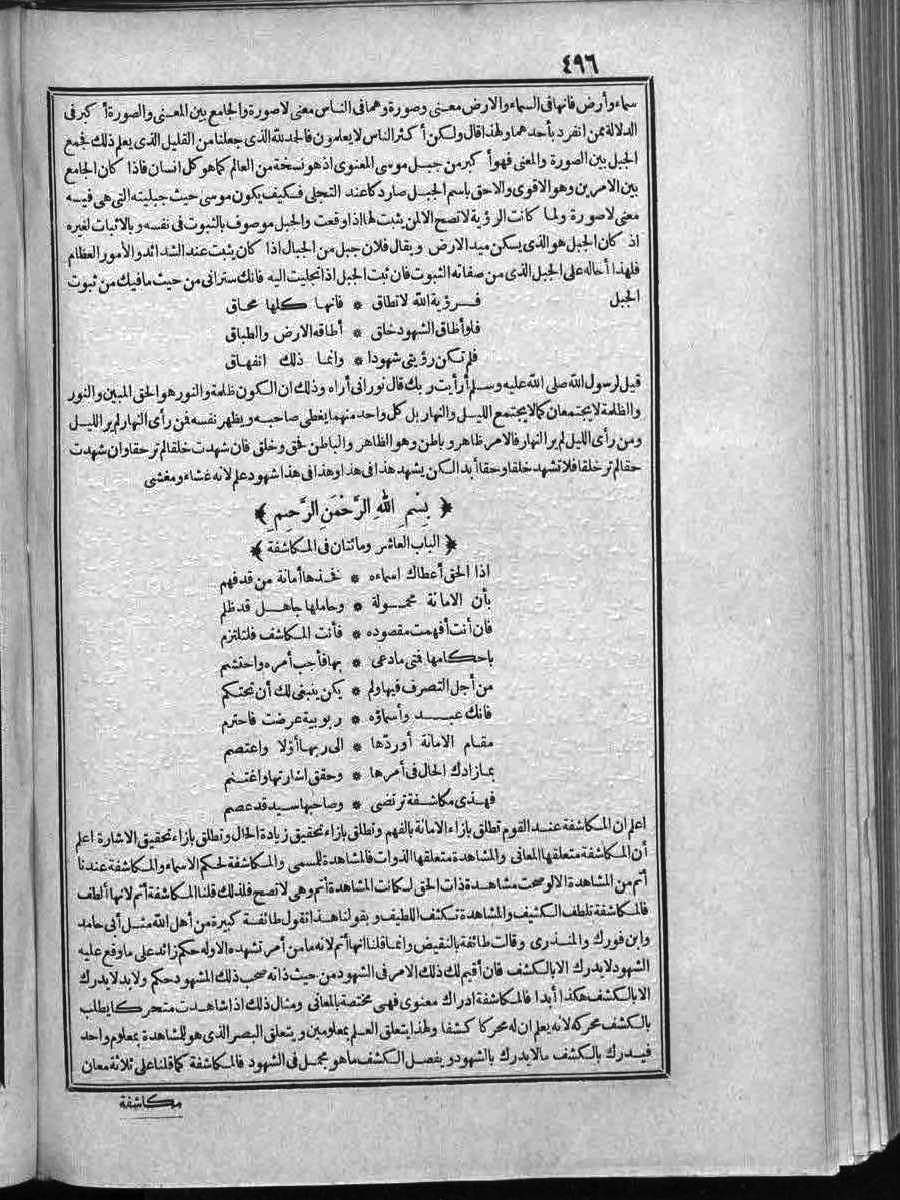 ٤٩٦
سماء وأرض فانها فى السماء والارض معنى وصورة وهما فى الناس معنى لاصورة والجامع بين المعنى والصورة أكبر فى
الدلالة ممن انفرد بأحدهما ولهذا قال ولكن أكثر الناس لايعلمون فالحمد لله الذى جعلنا من القليل الذى يعلم ذلك فجمع
الجبل بين الصورة والمعنى فهو أكبر من جبل موسى المعنوى اذ هو نسخة من العالم كما هو كل انسان فاذا كان الجامع
بين الامرين وهو الاقوى والاحق باسم الجبل صار دكا عند التجلى فكيف يكون موسى حيث جبليته التى هى فيه
معنى لاصورة ولما كانت الرؤية لاتصح الالمن يثبت لها اذا وقعت والجبل موصوف بالثبوت فى نفسه وبالاثبات لغيره
اذ كان الجبل هو الذى يسكن ميد الارض ويقال فلان جبل من الجبال اذا كان يثبت عند الشدائد والأمور العظام
فلهذا أحاله على الجبل الذى من صفاته الثبوت فان ثبت الجبل اذا تجليت اليه فانك سترانى من حيث مافيك من ثبوت
الجبل
فرؤية الله لاتطاق * فانها كلها محاق
فلو أطاق الشهود خلق * أطاقه الارض والطباق
فلم تكن رؤيتى شهودا * وانما ذلك انفهاق
قيل لرسول الله صلى الله عليه وسلم أرأيت ربك قال نورانى أراه وذلك ان الكون ظلمة والنور هو الحق المبين والنور
والظلمة لايجتمعان كما لايجتمع الليل والنهار بل كل واحد منهما يغطى صاحبه ويظهر نفسه فمن رأى النهار لم ير الليل
ومن رأى الليل لم ير النهار فالامر ظاهر وباطن وهو الظاهر والباطن فحق وخلق فان شهدت خلقا لم تر حقا وان شهدت
حقا لم تر خلقا فلا تشهد خلقا وحقا أبدا لكن يشهد هذا فى هذا وهذا فى هذا شهود علم لانه غشاء ومغشى
﴿ بِسْمِ اللهِ الرَّحْمَنِ الرَّحِيمِ ﴾
﴿ الباب العاشر ومائتان فى المكاشفة ﴾
اذا الحق أعطاك اسماءه * فخذها أمانة من قدفهم
بأن الامانة محمولة * وحاملها جاهل قد ظلم
فان أنت أفهمت مقصوده * فأنت المكاشف فلتلتزم
باحكامها فتى مادعى * بها فأجب أمره واحتشم
من أجل التصرف فيها ولم * يكن ينبغى لك أن تحتكم
فانك عبد وأسماؤه * ربوبية عرضت فاحترم
مقام الامانة أوردّها * الى ربها أوّلا واعتصم
بمازادك الحال فى أمرها * وحقق اشارتها واغتنم
فهذى مكاشفة ترتضى * وصاحبها سيد قد عصم
اعلم ان المكاشفة عند القوم تطلق بازاء الامانة بالفهم وتطلق بازاء تحقيق زيادة الحال وتطلق بازاء تحقيق الاشارة اعلم
أن المكاشفة متعلقها المعانى والمشاهدة متعلقها الذوات فالمشاهدة للمسمى والمكاشفة لحكم الاسماء والمكاشفة عندنا
أتم من المشاهدة الالوصحت مشاهدة ذات الحق لكانت المشاهدة أتم وهى لاتصح فلذلك قلنا المكاشفة أتم لانها ألطف
فالمكاشفة تلطف الكثيف والمشاهدة تكثف اللطيف وبقولنا هذا تقول طائفة كبيرة من أهل الله مثل أبى حامد
وابن فورك والمنذرى وقالت طائفة بالنقيض وانما قلنا انها أتم لانه مامن أمر تشهده الاوله حكم زائد على ماوقع عليه
الشهود لايدرك الابالكشف فان أقيم لك ذلك الامر فى الشهود من حيث ذاته صحب ذلك المشهود حكم ولابد لايدرك
الابالكشف هكذا أبدا فالمكاشفة ادراك معنوى فهى مختصة بالمعانى ومثال ذلك اذا شاهدت متحركا يطلب
بالكشف محركه لانه يعلم ان له محركا كشفا ولهذا يتعلق العلم بمعلومين ويتعلق البصر الذى هو للمشاهدة بمعلوم واحد
فيدرك بالكشف مالايدرك بالشهود ويفصل الكشف ماهو مجمل فى الشهود فالمكاشفة كما قلنا على ثلاثة معان
مكاشفة